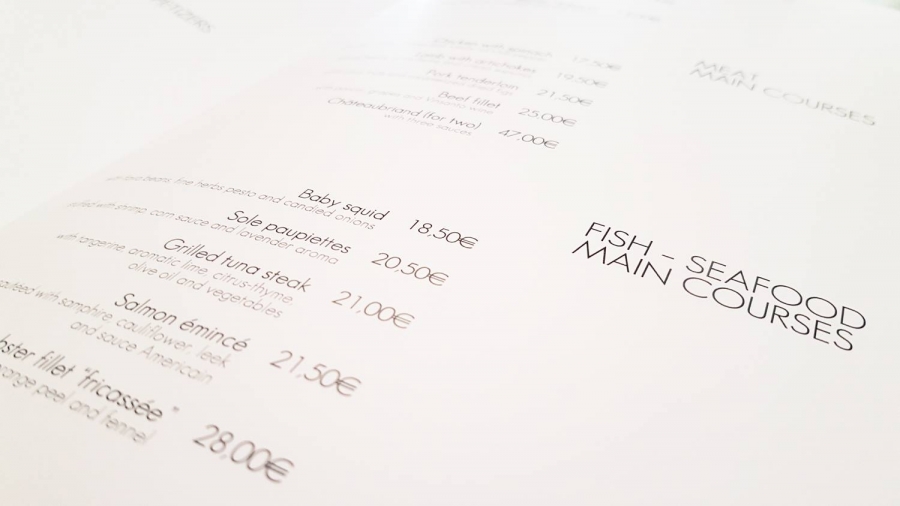 MEAT
MAIN COURSES
Chicken with
17,50€
with artichokes
19,50€
Pork tenderloin
21,50€
Beef fillet
25,00€
Châteaubriand (for two)
47,00€
with three sauces
FISH – SEAFOOD
MAIN COURSES
Baby squid
18,50€
beans, fine herbs pesto and candied onions
Sole paupiettes
20,50€
with shrimp, corn sauce and lavender aroma
Grilled tuna steak
21,00€
with tangerine, aromatic lime, citrus-thyme,
olive oil and vegetables
Salmon émincé
21,50€
with samphire, cauliflower, leek
and sauce Americain
fillet "fricassée "
28,00€
peel and fennel